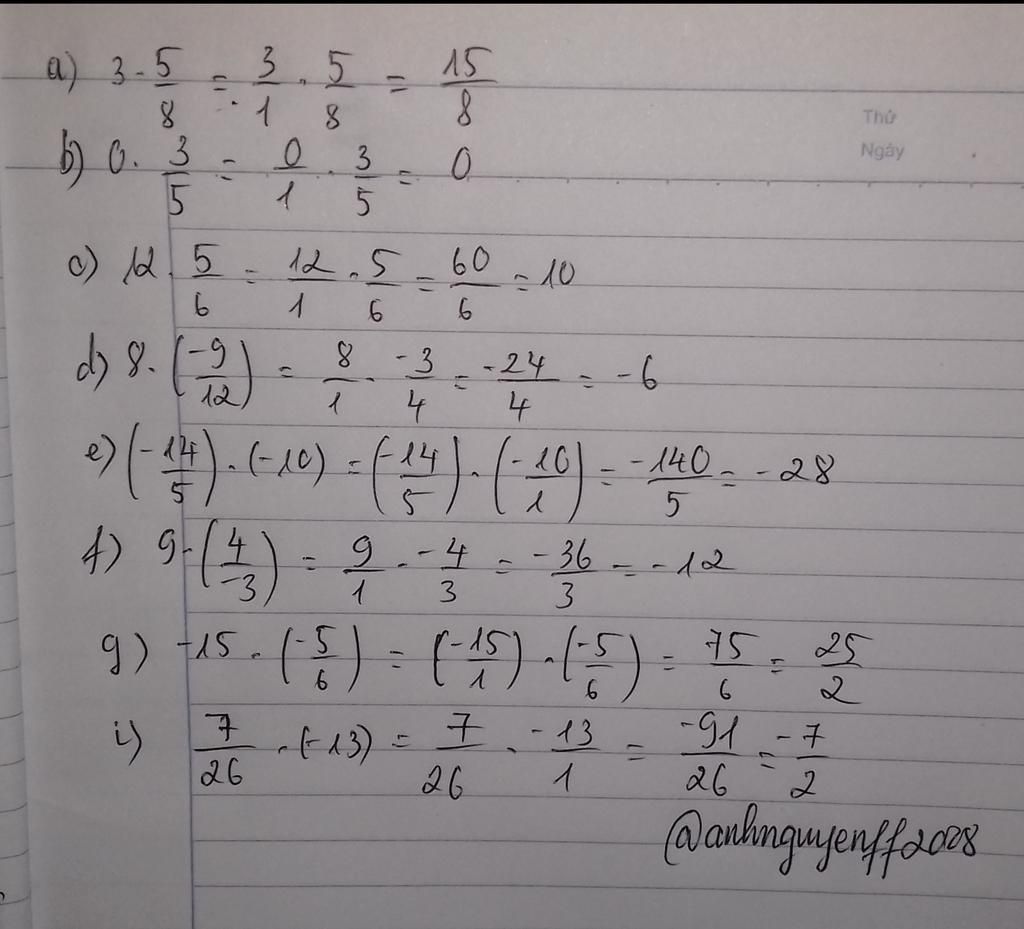 a) 3 · 5/8 = 3/1 · 5/8 = 15/8
Thứ
b) 0 · 3/5 = 0/1 · 3/5 = 0
Ngày
c) 12 · 5/6 = 12/1 · 5/6 = 60/6 = 10
d) 8 · (-9/12) = 8/1 · -3/4 = -24/4 = -6
e) (-14/5) · (-10) = (-14/5) · (-10/1) = -140/5 = -28
f) 9 · (4/-3) = 9/1 · -4/3 = -36/3 = -12
g) -15 · (-5/6) = (-15/1) · (-5/6) = 75/6 = 25/2
i) 7/26 · (-13) = 7/26 · -13/1 = -91/26 = -7/2
@anhnguyenff2008